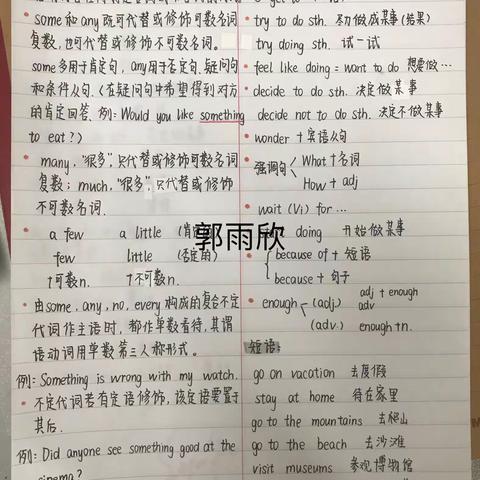 some 和 any 既可代替或修饰可数名词
复数，也可代替或修饰不可数名词。
some多用于肯定句，any用于否定句、疑问句
和条件从句。(在疑问句中希望得到对方
的肯定回答. 例: Would you like something
to eat?)
many, "很多", 只代替或修饰可数名词
复数; much, "很多", 只代替或修饰
不可数名词.
a few a little (肯
few little (否定的)
↑可数n. ↑不可数n.
由some, any, no, every 构成的复合不定
代词作主语时, 都作单数看待, 其谓
语动词用单数第三人称形式。
例: Something is wrong with my watch.
不定代词若有定语修饰, 该定语要置于
其后.
例: Did anyone see something good at the
cinema?
try to do sth. 尽力做某事(结果)
try doing sth. 试一试
feel like doing = want to do 想要做…
decide to do sth. 决定做某事
decide not to do sth. 决定不做某事
wonder + 宾语从句
强调句 What + 名词
How + adj
wait (Vi) for …
doing 开始做某事
because of + 短语
because + 句子
enough (adj) adj + enough
adv
(adv.) enough+n.
短语:
go on vacation 去度假
stay at home 待在家里
go to the mountains 去爬山
go to the beach 去沙滩
visit museums 参观博物馆
郭雨欣